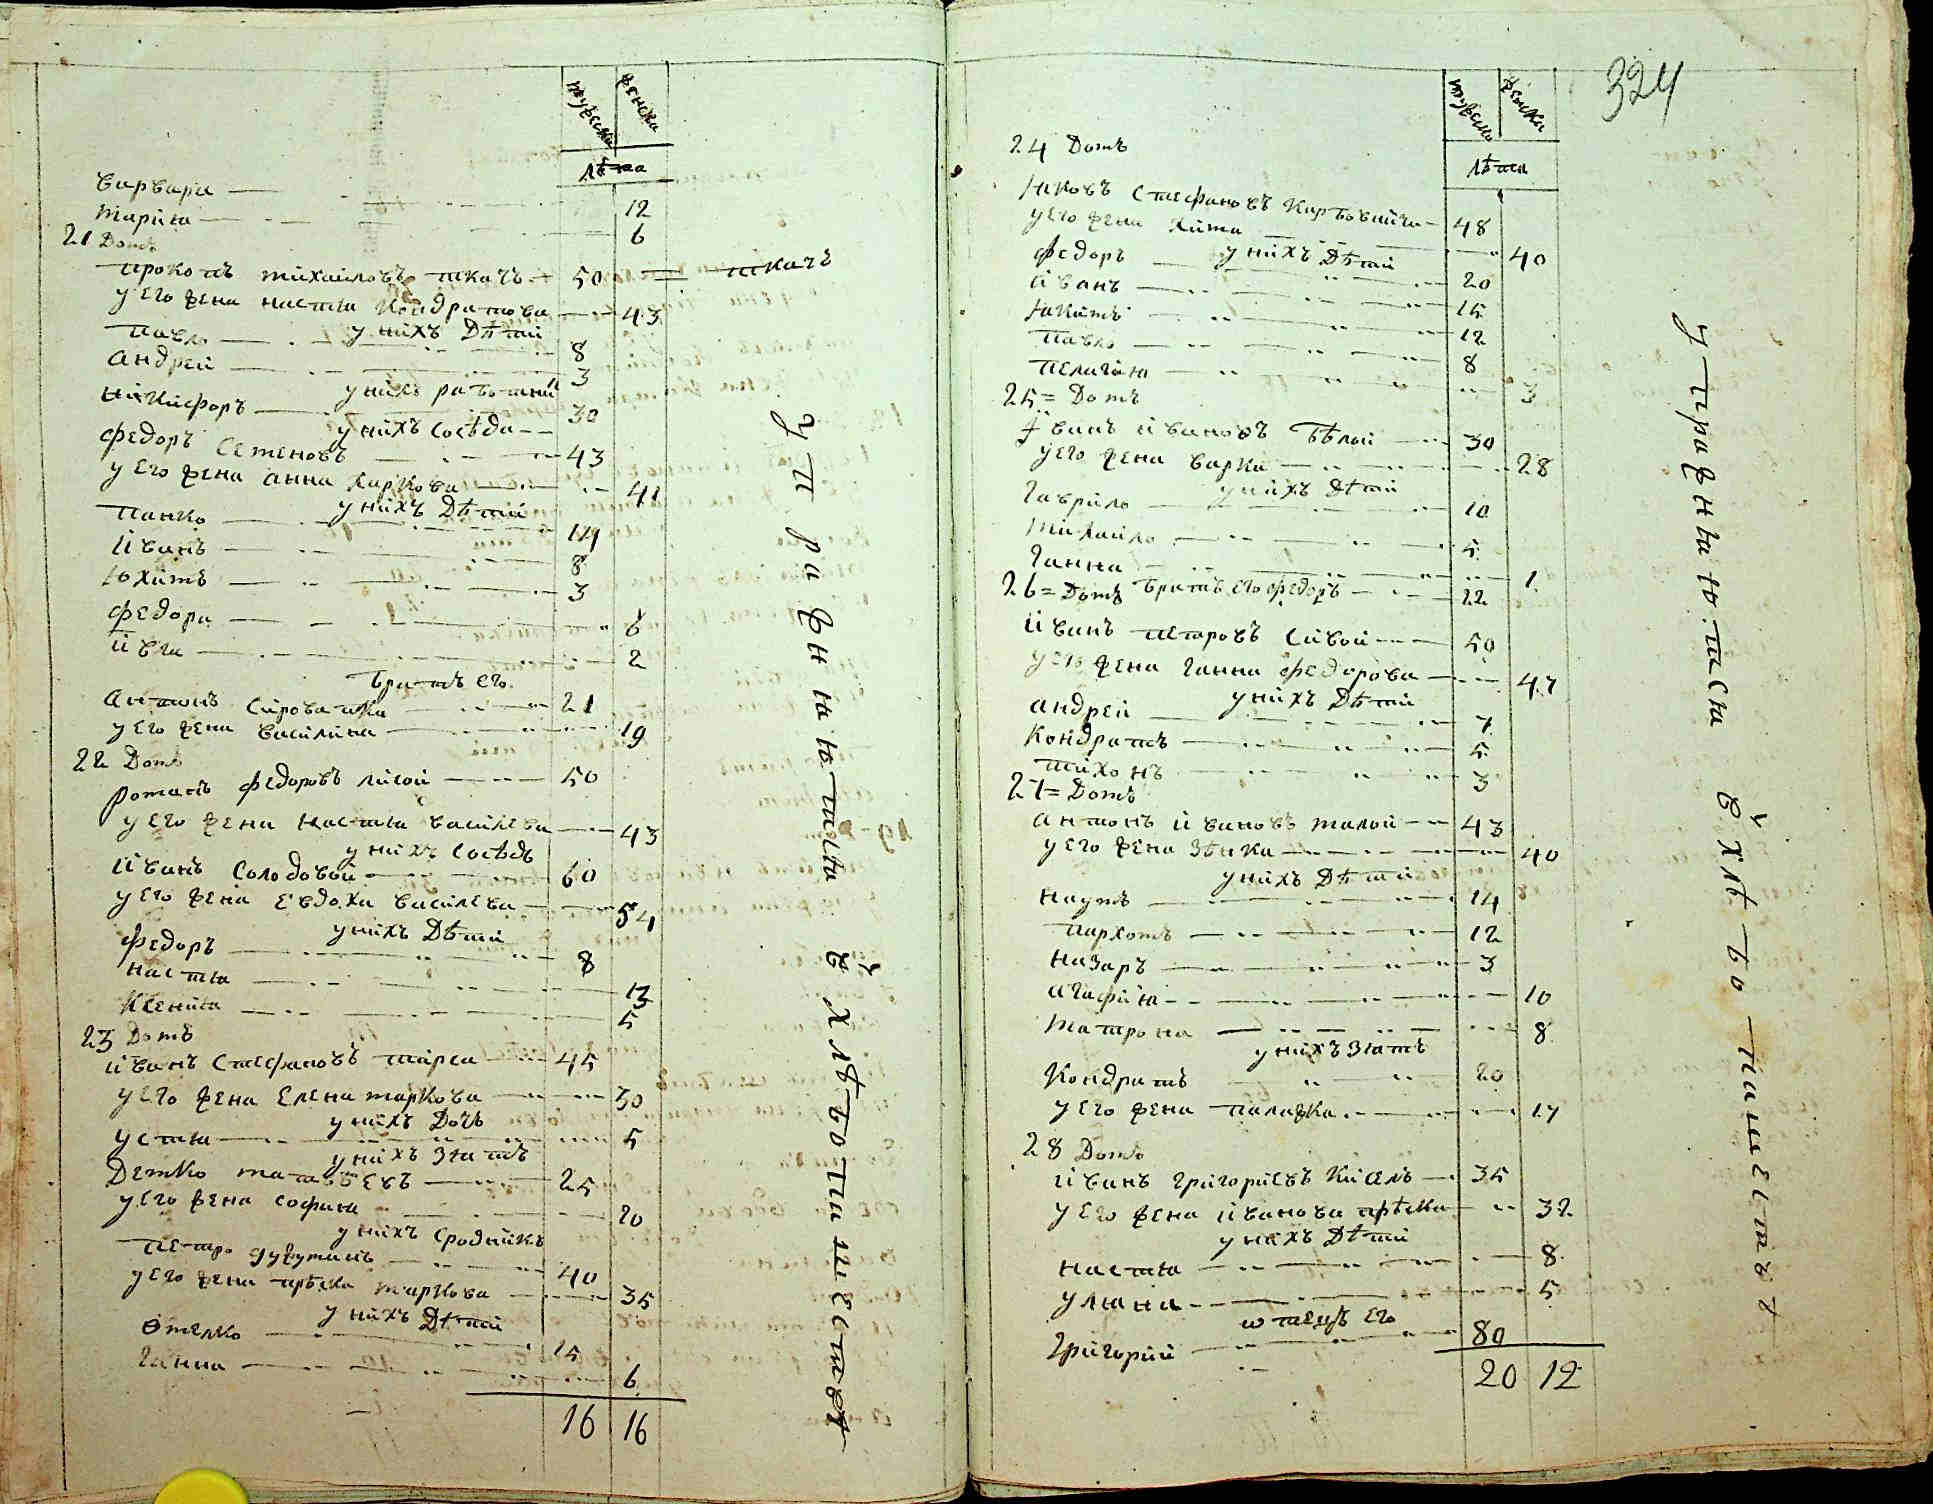 мужеска женска
лѣта
варвара 12
мария 6
21 Домъ
прокопъ михайловъ ткачъ 50 ткачъ
у его жена настя кондратова 43
у нихъ Дѣти
павло 8
андрей 3
у нихъ работник
никифоръ 30
у нихъ сосѣди
федоръ семеновъ 43
у его жена анна каркова 41
у нихъ Дѣти
панко 14
иванъ 8
юхимъ 3
федора 6
ивга 2
братъ его
антонъ сироватка 21
у его жена василина 19
22 Домъ
романъ федоровъ лисой 50
у его жена настя василева 43
у нихъ сосѣдъ
иванъ солодовой 60
у его жена евдоха василева 54
у нихъ Дѣти
федоръ 8
настя 13
ксения 5
23 Домъ
иванъ стефановъ 45
у его жена елена маркова 30
у нихъ Дочь
устя 5
у нихъ зять
Демко матвѣевъ 25
у его жена софия 20
у нихъ сродникъ
петро 40
у его жена прѣска маркова 35
у нихъ Дѣти
омелко 15
ганна 6
16 16
упражняются в хлѣбопашествѣ
324
мужеска женска
лѣта
24 Домъ
яковъ стефановъ 48
у его жена хима 40
у нихъ Дѣти
федоръ 20
иванъ 15
якимъ 12
павло 8
пелагия 3
25 = Домъ
иванъ ивановъ бѣлый 30
у его жена варка 28
у нихъ Дѣти
гаврило 10
михайло 5
ганна 1
братъ его федоръ 22
26 = Домъ
иванъ петровъ сивой 50
у его жена ганна федорова 47
у нихъ Дѣти
андрей 7
кондратъ 5
тихонъ 3
27 = Домъ
антонъ ивановъ малой 43
у его жена зѣнка 40
у нихъ Дѣти
наумъ 14
пархомъ 12
назаръ 3
агафия 10
матрона 8
у нихъ зять
кондратъ 20
у его жена палажка 17
28 Домъ
иванъ григориевъ кисель 35
у его жена иванова прѣска 32
у нихъ Дѣти
настя 8
уляна 5
ѡтецъ его
григорий 80
20 12
упражняются в хлѣбопашествѣ